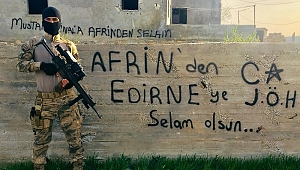 MUSTA
NAL'A AFRİNDEN SELAM
AFRİN'den ÇA
EDİRNE'ye J.Ö.H
Selam olsun...